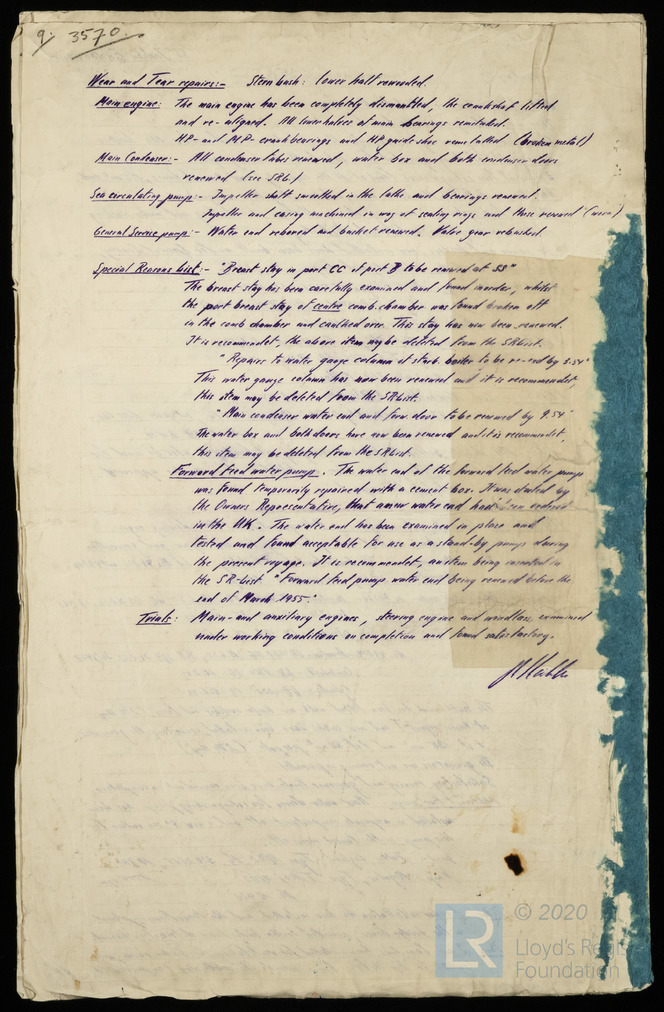 9. 3570.
Wear and Tear repairs:- Sternbush: lower half rewooded.
Main engine: The main engine has been completely dismantled, the crankshaft lifted
and re-aligned. All lower halves of main bearings remitalled.
HP- and MP-crank bearings and HP guide shoe remitalled (broken metal)
Main Condenser:- All condenser tubes renewed, water box and both condenser doors
renewed (see SRL.)
Sea circulating pump:- Impeller shaft smoothed in the lathe and bearings renewed.
Impeller and casing machined in way of sealing rings and these renewed (worn)
General Service pump:- Water end rebored and bucket renewed. Valve gear rebushed
Special Reasons List:- "Breast stay in port CC of port B to be renewed at SS"
The breast stay has been carefully examined and found in order, whilst
the port breast stay of centre comb. chamber was found broken off
in the comb chamber and caulked over. This stay has now been renewed.
It is recommendet, the above item may be deleted from the SR List.
"Repairs to water gauge column of starb. boiler to be re-exd by 3.54"
This water gauge column has now been renewed and it is recommendet
this item may be deleted from the SR List.
"Main condenser water end and forw. door to be renewed by 9.54"
The water box and both doors have now been renewed and it is recommendet,
this item may be deleted from the SR List.
Forward feed water pump. The water end of the forward feed water pump
was found temporarily repaired with a cement box. It was stated by
the Owners Representative, that a new water end had been ordered
in the UK. The water end has been examined in place and
tested and found acceptable for use as a stand-by pump during
the present voyage. It is recommendet, an item being inserted in
the SR-List "Forward feed pump water end being renewed before the
end of March 1955."
Trials: Main- and auxiliary engines, steering engine and windlass examined
under working conditions on completion and found satisfactory.
© 2020
Lloyd's Register
Foundation
LR